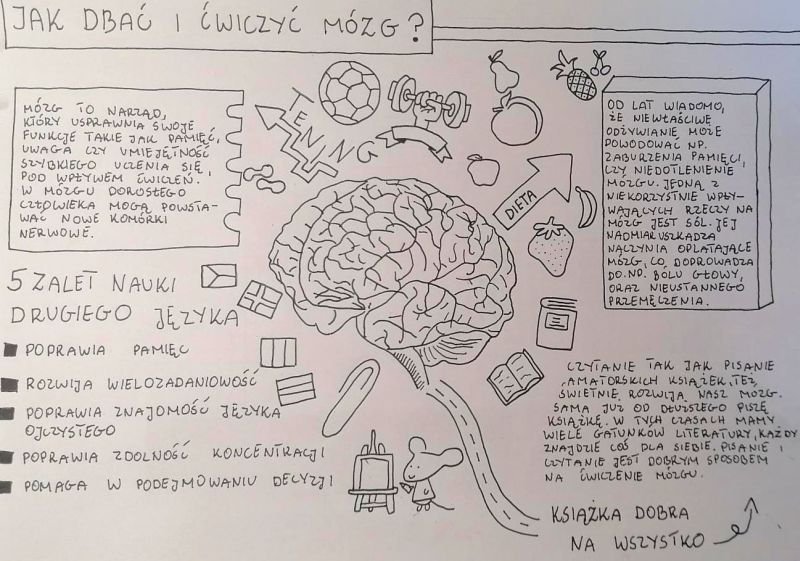 JAK DBAĆ I ĆWICZYĆ MÓZG?
MÓZG TO NARZĄD,
KTÓRY USPRAWNIA SWOJE
FUNKCJE TAKIE JAK PAMIĘĆ,
UWAGA CZY UMIEJĘTNOŚĆ
SZYBKIEGO UCZENIA SIĘ,
POD WPŁYWEM ĆWICZEŃ.
W MÓZGU DOROSŁEGO
CZŁOWIEKA MOGĄ POWSTA-
WAĆ NOWE KOMÓRKI
NERWOWE.
TENING
DIETA
OD LAT WIADOMO,
ŻE NIEWŁAŚCIWE
ODŻYWIANIE MOŻE
POWODOWAĆ NP.
ZABURZENIA PAMIĘCI,
CZY NIEDOTLENIENIE
MÓZGU. JEDNĄ Z
NIEKORZYSTNIE WPŁY-
WAJĄCYCH RZECZY NA
MÓZG JEST SÓL. JEJ
NADMIAR USZKADZA
NACZYNIA OPLATAJĄCE
MÓZG, CO DOPROWADZA
DO.NP. BÓLU GŁOWY,
ORAZ NIEUSTANNEGO
PRZEMĘCZENIA.
5 ZALET NAUKI
DRUGIEGO JĘZYKA
POPRAWIA PAMIĘĆ
ROZWIJA WIELOZADANIOWOŚĆ
POPRAWIA ZNAJOMOŚĆ JĘZYKA
OJCZYSTEGO
POPRAWIA ZDOLNOŚĆ KONCENTRACJI
POMAGA W PODEJMOWANIU DECYZJI
CZYTANIE TAK JAK PISANIE
AMATORSKICH KSIĄŻEK, TEŻ
ŚWIETNIE ROZWIJA NASZ MÓZG.
SAMA JUŻ OD DŁUŻSZEGO PISZĘ
KSIĄŻKĘ. W TYCH CZASACH MAMY
WIELE GATUNKÓW LITERATURY, KAŻDY
ZNAJDZIE COŚ DLA SIEBIE. PISANIE I
CZYTANIE JEST DOBRYM SPOSOBEM
NA ĆWICZENIE MÓZGU.
KSIĄŻKA DOBRA
NA WSZYSTKO